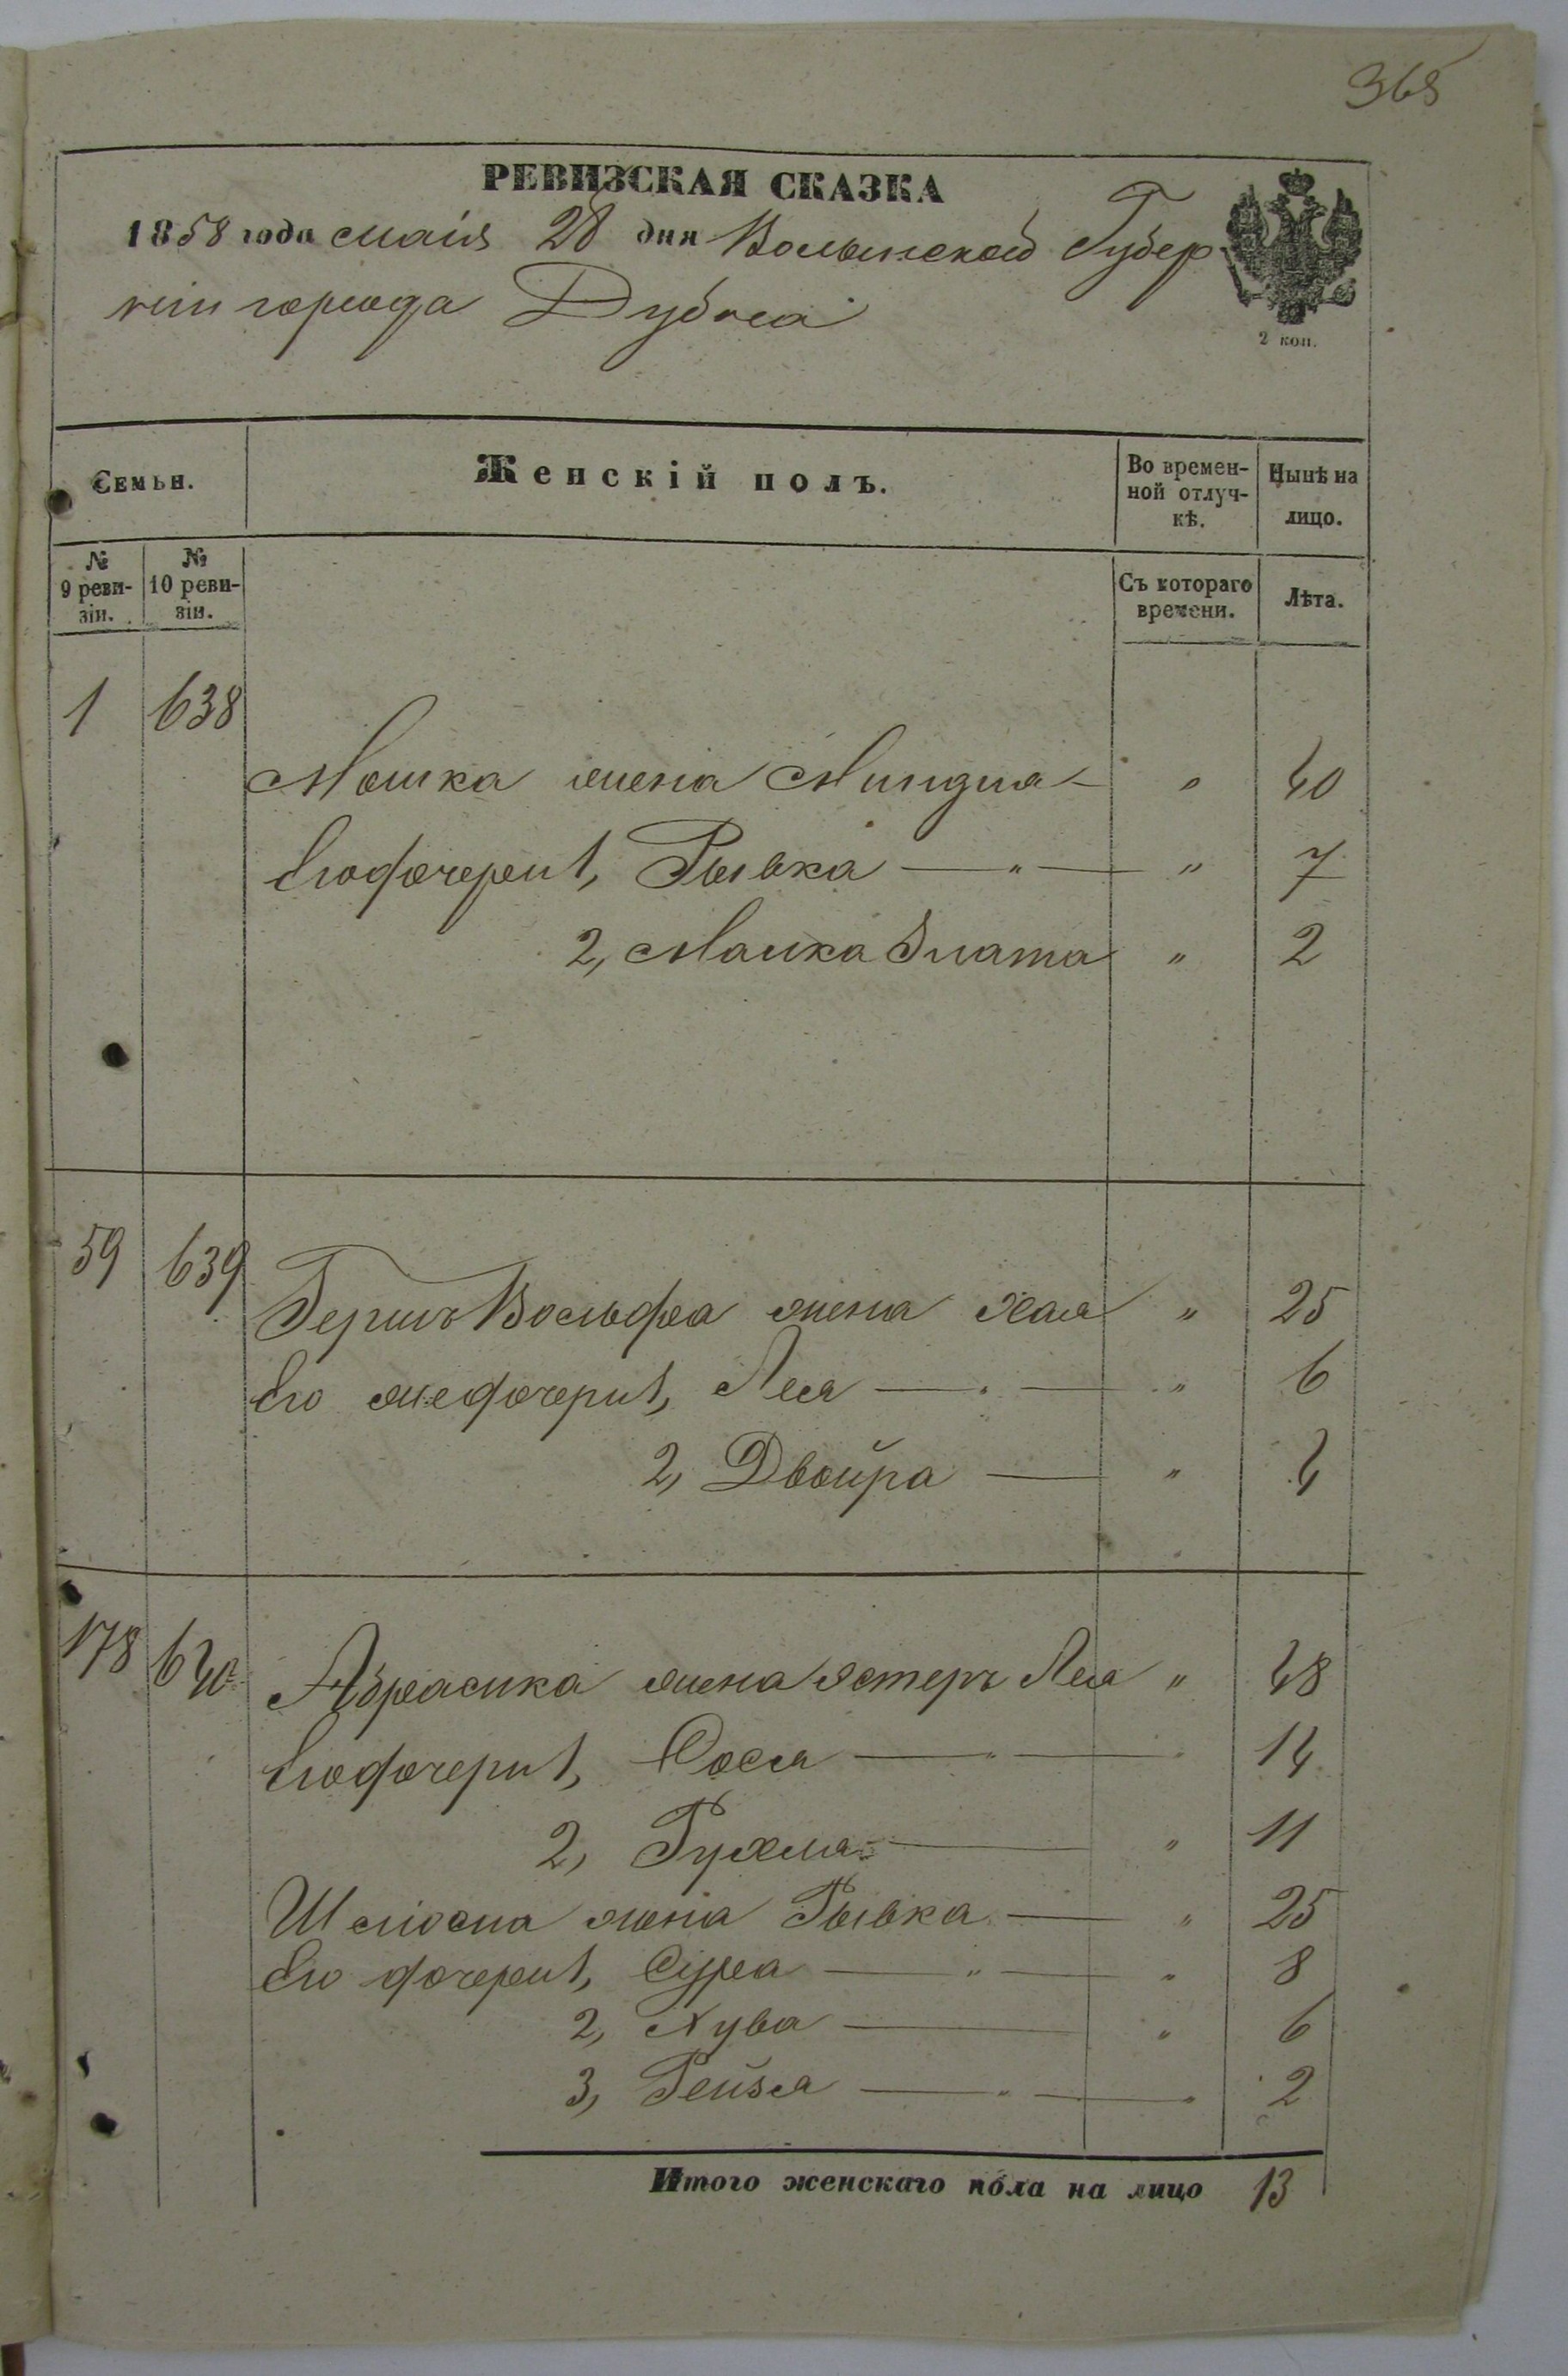 365
РЕВИЗСКАЯ СКАЗКА
1858 года маія 28 дня Волынской Губер
ніи города Дубна
2 коп.
Семьи.
Женскій полъ.
Во времен-
ной отлуч-
кѣ.
Нынѣ на
лицо.
№
9 реви-
зіи.
№
10 реви-
зіи.
Съ котораго
времени.
Лѣта.
1 638
Мошка жена Миндля — " 40
Его дочери 1, Рывка — " — " 7
2, Малка Злата " 2
59 639
Гершъ Вольфа жена Хая " 25
Его же дочери 1, Лея — " — " 6
2, Двойра — " 4
178 640
Абрамка жена Эстеръ Лея " 48
Его дочери 1, Сося — " — " 14
2, Рухля — " 11
Шлiома жена Рывка — " 25
Его дочери 1, Сура — " — " 8
2, Хува — " 6
3, Рейзя — " — " 2
Итого женскаго пола на лицо 13